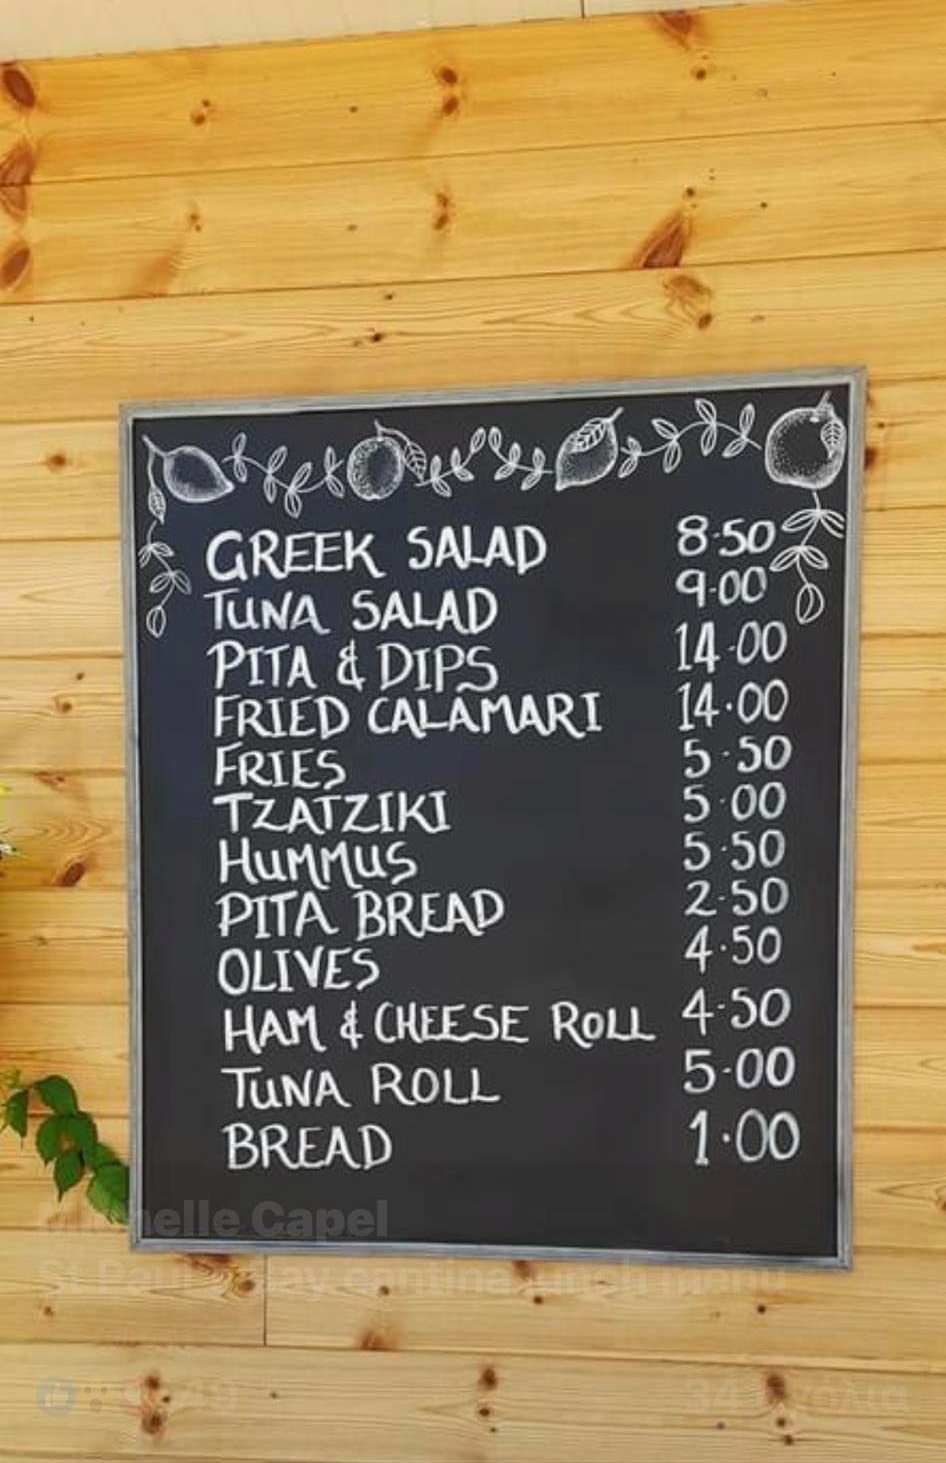 GREEK SALAD 8.50
TUNA SALAD 9.00
PITA & DIPS 14.00
FRIED CALAMARI 14.00
FRIES 5.50
TZATZIKI 5.00
HUMMUS 5.50
PITA BREAD 2.50
OLIVES 4.50
HAM & CHEESE ROLL 4.50
TUNA ROLL 5.00
BREAD 1.00
Michelle Capel
St Paul's bay cantina lunch menu
34 σχόλια